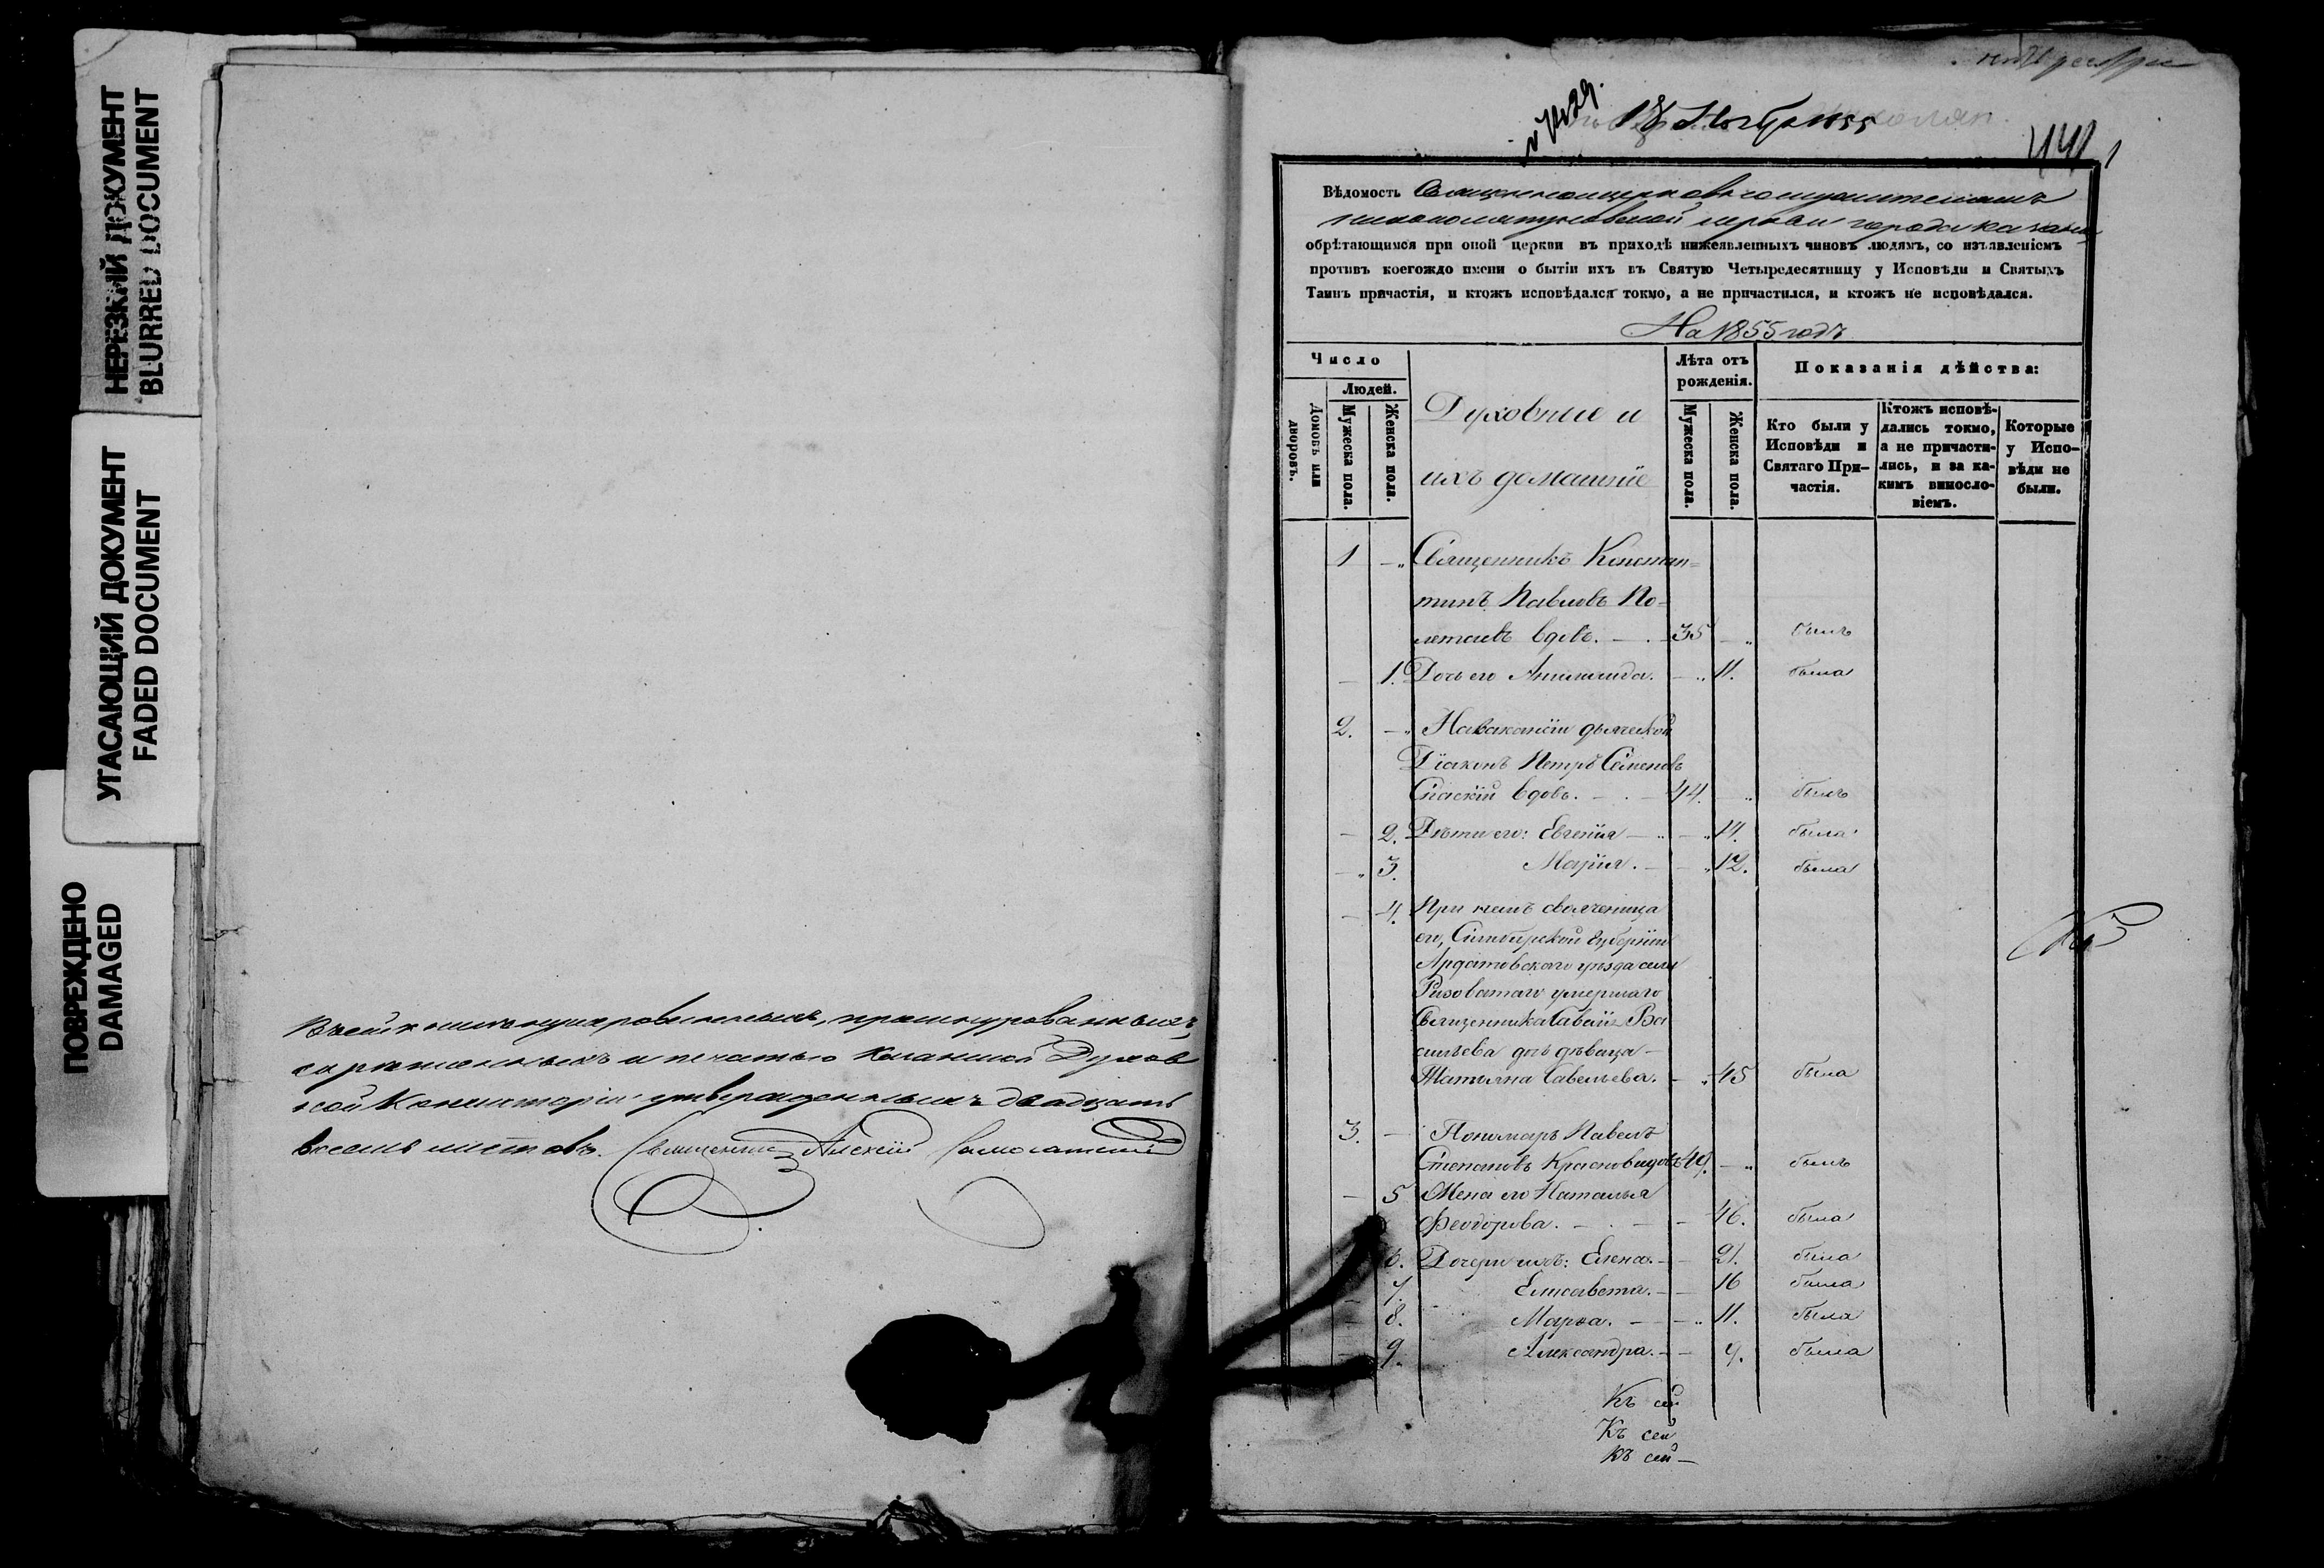 НЕРЕЗКИЙ ДОКУМЕНТ
BLURRED DOCUMENT
УГАСАЮЩИЙ ДОКУМЕНТ
FADED DOCUMENT
ПОВРЕЖДЕНО
DAMAGED
В сей книге нумерованныхъ, прошнурованныхъ,
скрепленныхъ и печатью Казанской Духов
ной Консисторіи утвержденныхъ двадцать
восемь листовъ. Священникъ Алексій
18 Нояб 1855
Вѣдомость
церкви города Казани
обрѣтающимся при оной церкви въ приходѣ нижеявленныхъ чиновъ людямъ, со изъявленіемъ
противъ коегождо имени о бытіи ихъ въ Святую Четыредесятницу у Исповѣди и Святыхъ
Таинъ причастія, и ктожъ исповѣдался токмо, а не причастился, и ктожъ не исповѣдался.
На 1855 годъ
Число
Людей.
Домовъ или дворовъ.
Мужеска пола.
Женска пола.
Духовные и
ихъ домашніе
Лѣта отъ рожденія.
Мужеска пола.
Женска пола.
Показанія дѣйства:
Кто были у Исповѣди и Святаго Причастія.
Ктожъ исповѣдались токмо, а не причастились, и за какимъ винословіемъ.
Которые у Исповѣди не были.
1 Священникъ Констан=
тинъ Павловъ По=
летаевъ вдовъ. 35 былъ
1. Дочь его 11. была
2. На ваканціи дьяческой
Діаконъ Петръ Семеновъ
Спаскій вдовъ. 44. былъ
2. Дѣти его: Евгенія 14. была
3. Марія. 12. была
4. При немъ свояченица
его, Симбирской Губерніи
Ардатовскаго уѣзда села
Ризоватаго умершаго
Священника Савы Ва
сильева дочь дѣвица
Татьяна Савельева. 45 была
3. Пономарь Павелъ
Степановъ Красновидовъ 49. былъ
5 Жена его Наталья
Феодорова. 46. была
6. Дочери ихъ: Елена. 21. была
7. Елисавета. 16 была
8. Марѳа. 11. была
9. Александра. 9. была
Къ сей
Къ сей
Къ сей